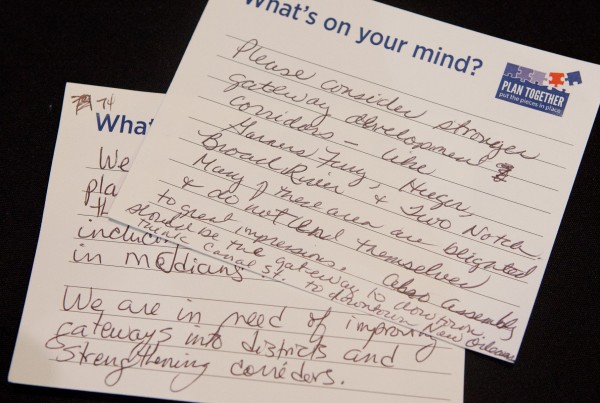 What's on your mind?
PLAN TOGETHER
put the pieces in place
Please consider stronger
gateway development
corridors - like
Garners Ferry, Huger,
Broad River & Two Notch.
Many of these area are beighted
& do not lend themselves
to great impressions. Also Assembly
should be the gateway to downtown
Think Canal St. to downtown New Orleans
74
What
We
pla
th
includ
in medians
We are in need of improving
gateways into districts and
strengthening corriders.